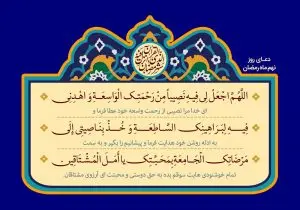 دعای روز
نهم ماه رمضان
اللَّهُمَّ اجْعَلْ لِی فِیهِ نَصِیباً مِنْ رَحْمَتِکَ الْوَاسِعَةِ وَ اهْدِنِی
ای خدا مرا نصیبی از رحمت واسعه خود عطا فرما و
فِیهِ لِبَرَاهِینِکَ السَّاطِعَةِ وَ خُذْ بِنَاصِیَتِی إِلَی
به ادله روشن خود هدایت فرما و پیشانیم را بگیر و به سمت
مَرْضَاتِکَ الْجَامِعَةِ بِمَحَبَّتِکَ یَا أَمَلَ الْمُشْتَاقِینَ
تمام خوشنودی هایت سوقم بده به حق دوستی و محبتت ای آرزوی مشتاقان